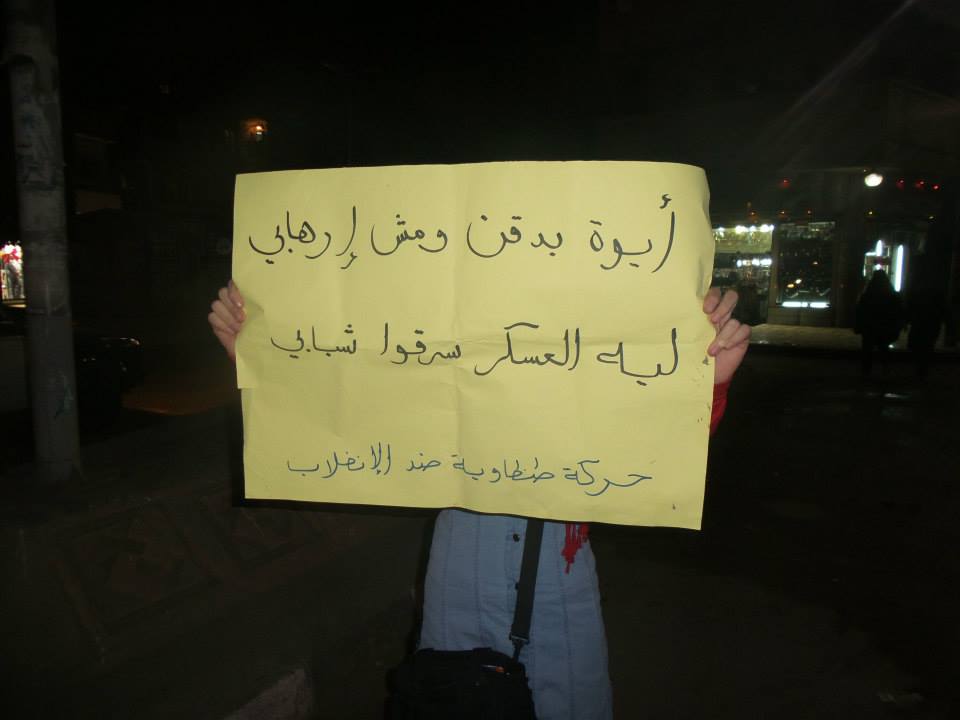 أيوة بدقن ومش إرهابي
ليه العسكر سرقوا شبابي
حركة طنطاوية ضد الإنقلاب